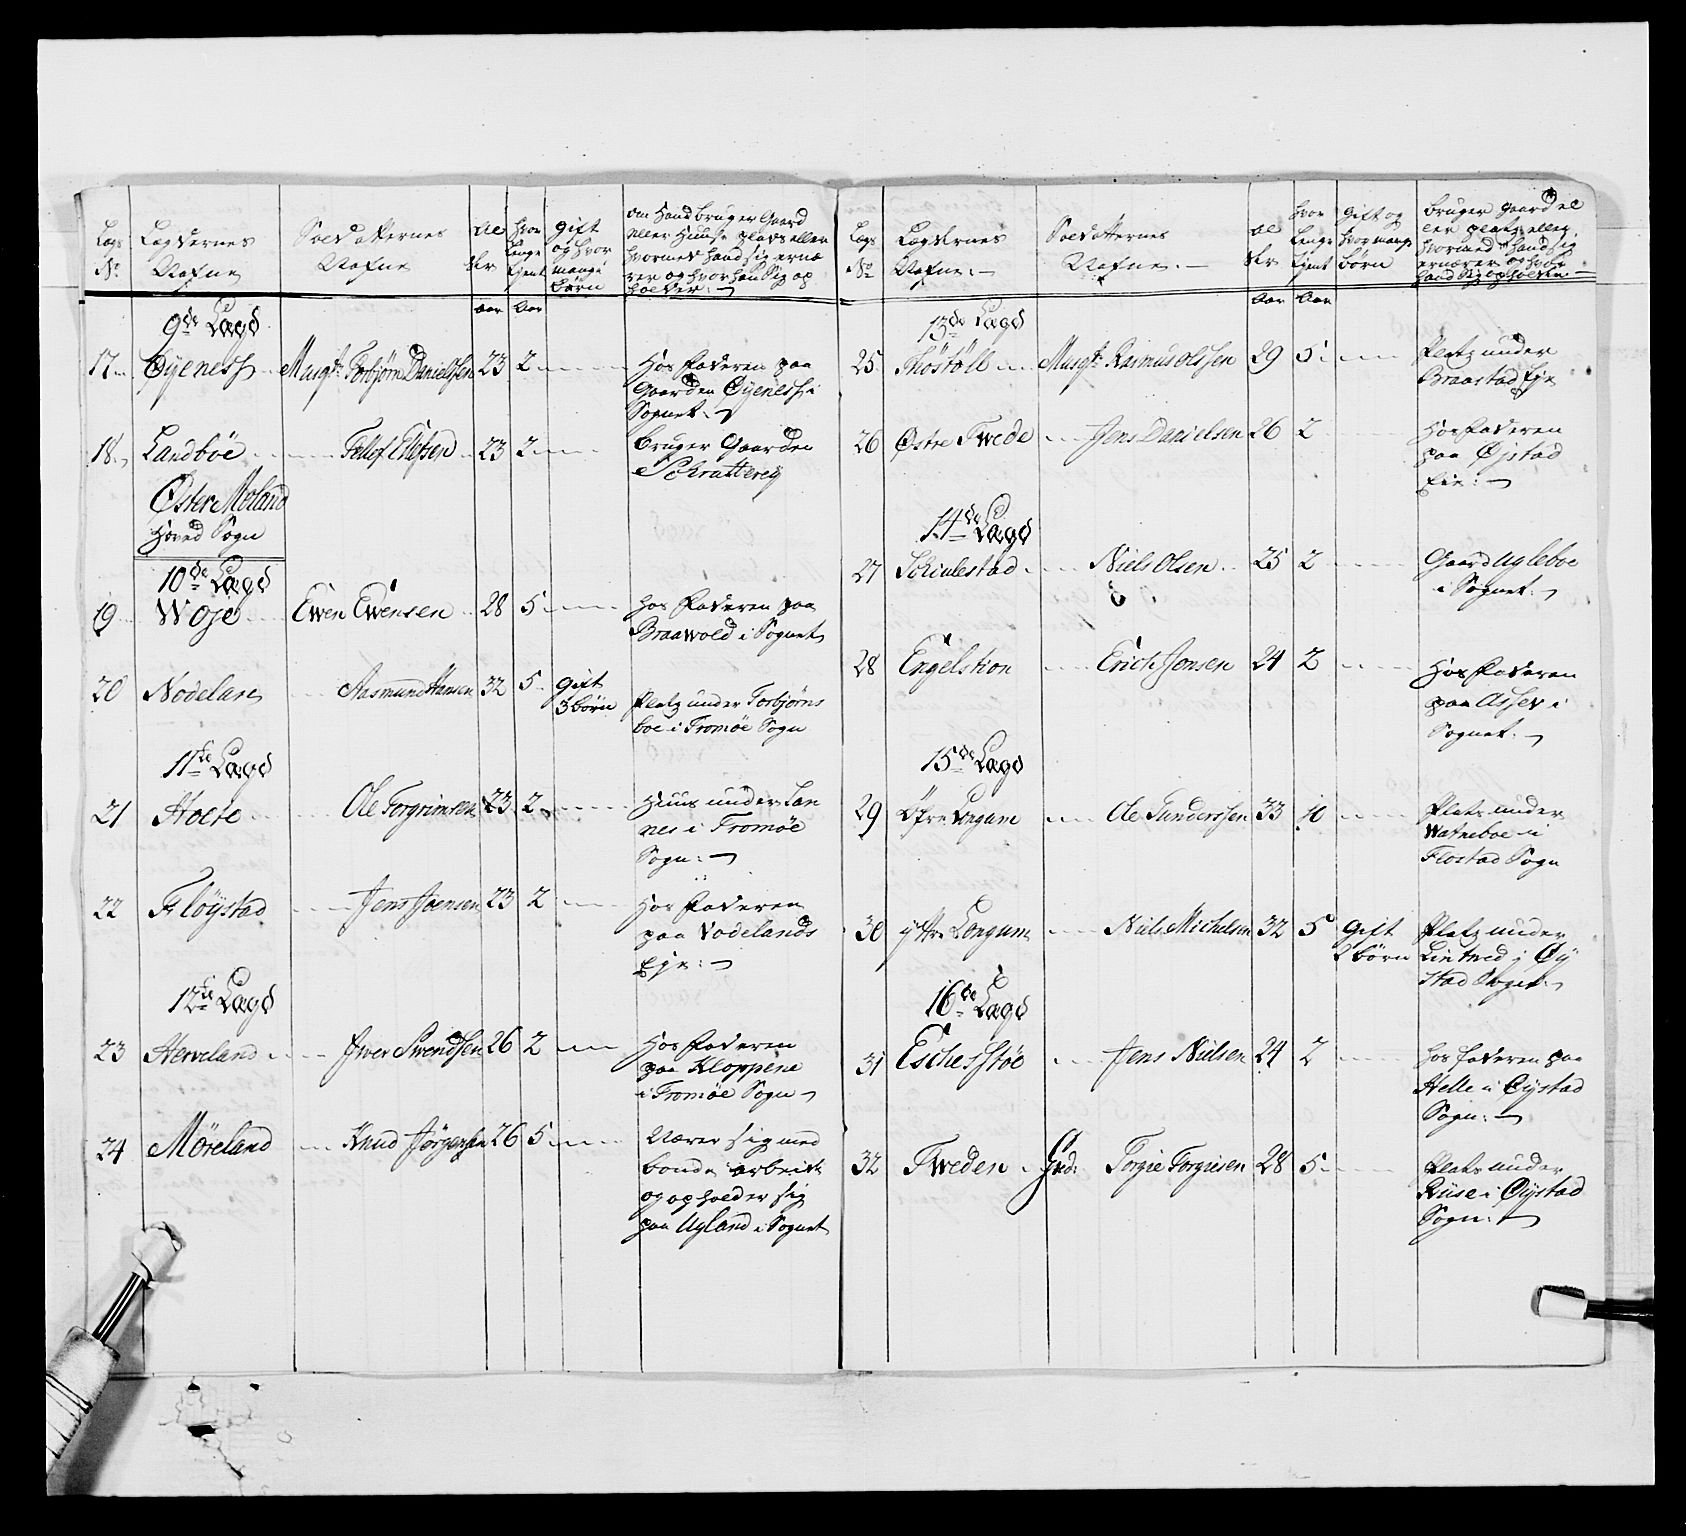 Lægs No | Lægdernes Nafne | Soldatternes Nafne | Al der | Hvor Længe tjent | Gift og hvor mange børn | om Hand bruger Gaard eller Huuse plads eller hvormed hand sig ernæ rer og hvor hand Sig op holder:
Aar | Aar
9de Lægd
17 | Øyeness | Musqt. Torbjørn Danielssen | 23 | 2 | Hos faderen paa
Gaarden Øyeness i
Sognet.
18 | Landbøe | Tellef Ellefsen | 23 | 2 | bruger Gaarden
Schratterey
Øster Moland
Hoved Sogn
10de Lægd
19 | Woje | Ewen Ewensen | 28 | 5 | hos faderen paa
Braawold i Sognet
20 | Nodeland | Aasmund Hansen | 32 | 5 | gift
3 børn | Platz under Torbjørns
boe i Tromøe Sogn
11te Lægd
21 | Ole Torgrimsen | 23 | 2 | Huus under
i Tromøe
Sogn:
22 | Fløystad | Jens Joensen | 23 | 2 | Hos faderen
paa Nodelands
Eje:
12te Lægd
23 | Herveland | Iwer Swendsen | 26 | 2 | Hos faderen
paa Kloppene
i Tromøe Sogn
24 | Møreland | Knud Jørgensen | 26 | 5 | Nærer sig med
bonde arbeide
og opholder sig
paa Ugland i Sognet
Lægs No | Lægdernes Nafne | Soldatternes Nafne | al der | hvor Lenge tjent | Gift og hvor mange børn | bruger gaard el ler platz eller hvormed hand sig ernærer og hvor hand Sig opholder
Aar | Aar
13de Lægd
25 | Musqt. Rasmus Olssen | 29 | 5 | Platz under
Braastad Eje
26 | Østre Twede | Jens Danielsen | 26 | 2 | Hos faderen
paa Øjstad
Eie:
14de Lægd
27 | Schiulestad | Niels Olsen | 25 | 2 | Gaard Ugleboe
i Sognet.
28 | Engelstion | Erich Jensen | 24 | 2 | Hos faderen
paa Assev i
Sognet.
15de Lægd
29 | Øfre Longum | Ole Gunderssen | 33 | 10 | Plats under
Watneboe i
Flostad Sogn
30 | Yttre Longum | Niels Michelsen | 32 | 5 | Gift
2 børn | Platz under
Lintved i Øy
stad Sogn
16de Lægd
31 | Eschesstøe | Jens Nielsen | 24 | 2 | hos faderen paa
Helle i Øystad
Sogn:
32 | Tweden | Torgie Torgiesen | 28 | 5 | Plats under
Riise i Øystad
Sogn: